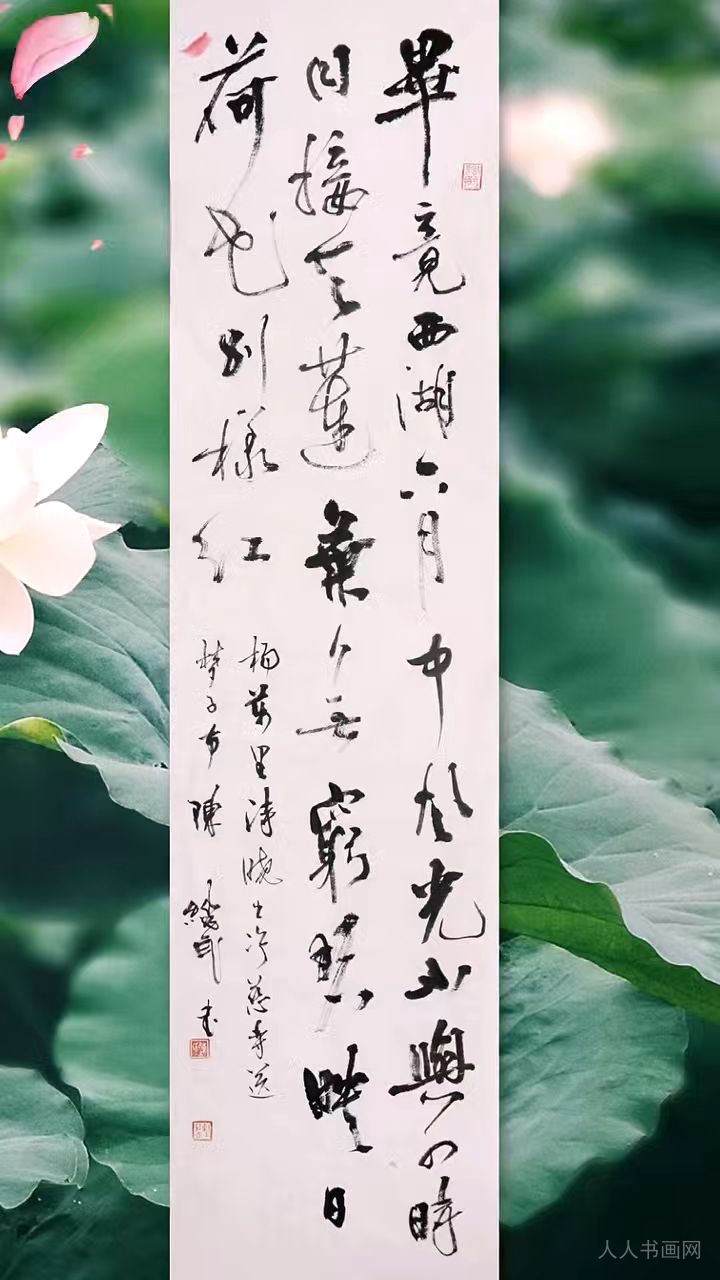 畢竟西湖六月中風光不與四時
同接天蓮葉無窮碧映日
荷花別樣紅
楊萬里詩曉出淨慈寺送
林子方陳書
人人书画网